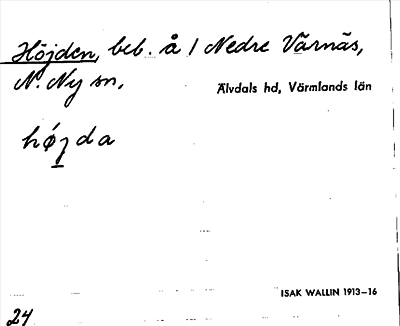 Höjden, beb. å 1 Nedre Värnäs,
N. Ny sn,
Älvdals hd, Värmlands län
hǿȷda
ISAK WALLIN 1913–16
24